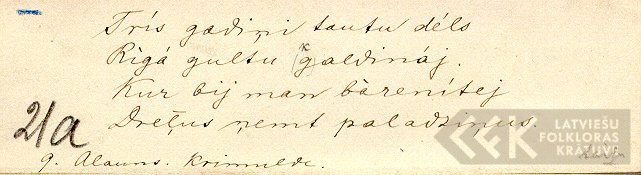 Trís gadiņi tautu déls
Rīgá gultu galdináj.
k
Kur bij man bārenítej
Dreļus ņemt paladziņus.
2/a
9. Alauns. Krimulde.
LATVIEŠU
FOLKLORAS
KRĀTUVE